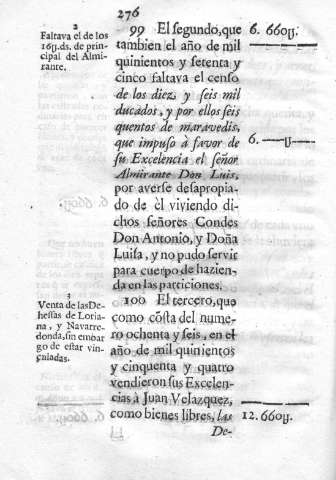 276
2
Faltava el de los
16y.ds. de prin-
cipal del Almi-
rante.
99 El segundo, que
tambien el año de mil
quinientos y setenta y
cinco faltava el censo
de los diez, y seis mil
ducados, y por ellos seis
quentos de maravedis,
que impuso à favor de
su Excelencia el señor
Almirante Don Luis,
por averse desapropia-
do de èl viviendo di-
chos señores Condes
Don Antonio, y Doña
Luisa, y no pudo servir
para cuerpo de hazien-
da en las particiones.
6. 660y.
6. y.
3
Venta de las De-
hessas de Loria-
na, y Navarre-
donda, sin embar
go de estar vin-
culadas.
100 El tercero, que
como cõsta del nume-
ro ochenta y seis, en el
año de mil quinientos
y cinquenta y quatro
vendieron sus Excelen-
cias à Juan Velazquez,
como bienes libres, las
12. 660y.
De-